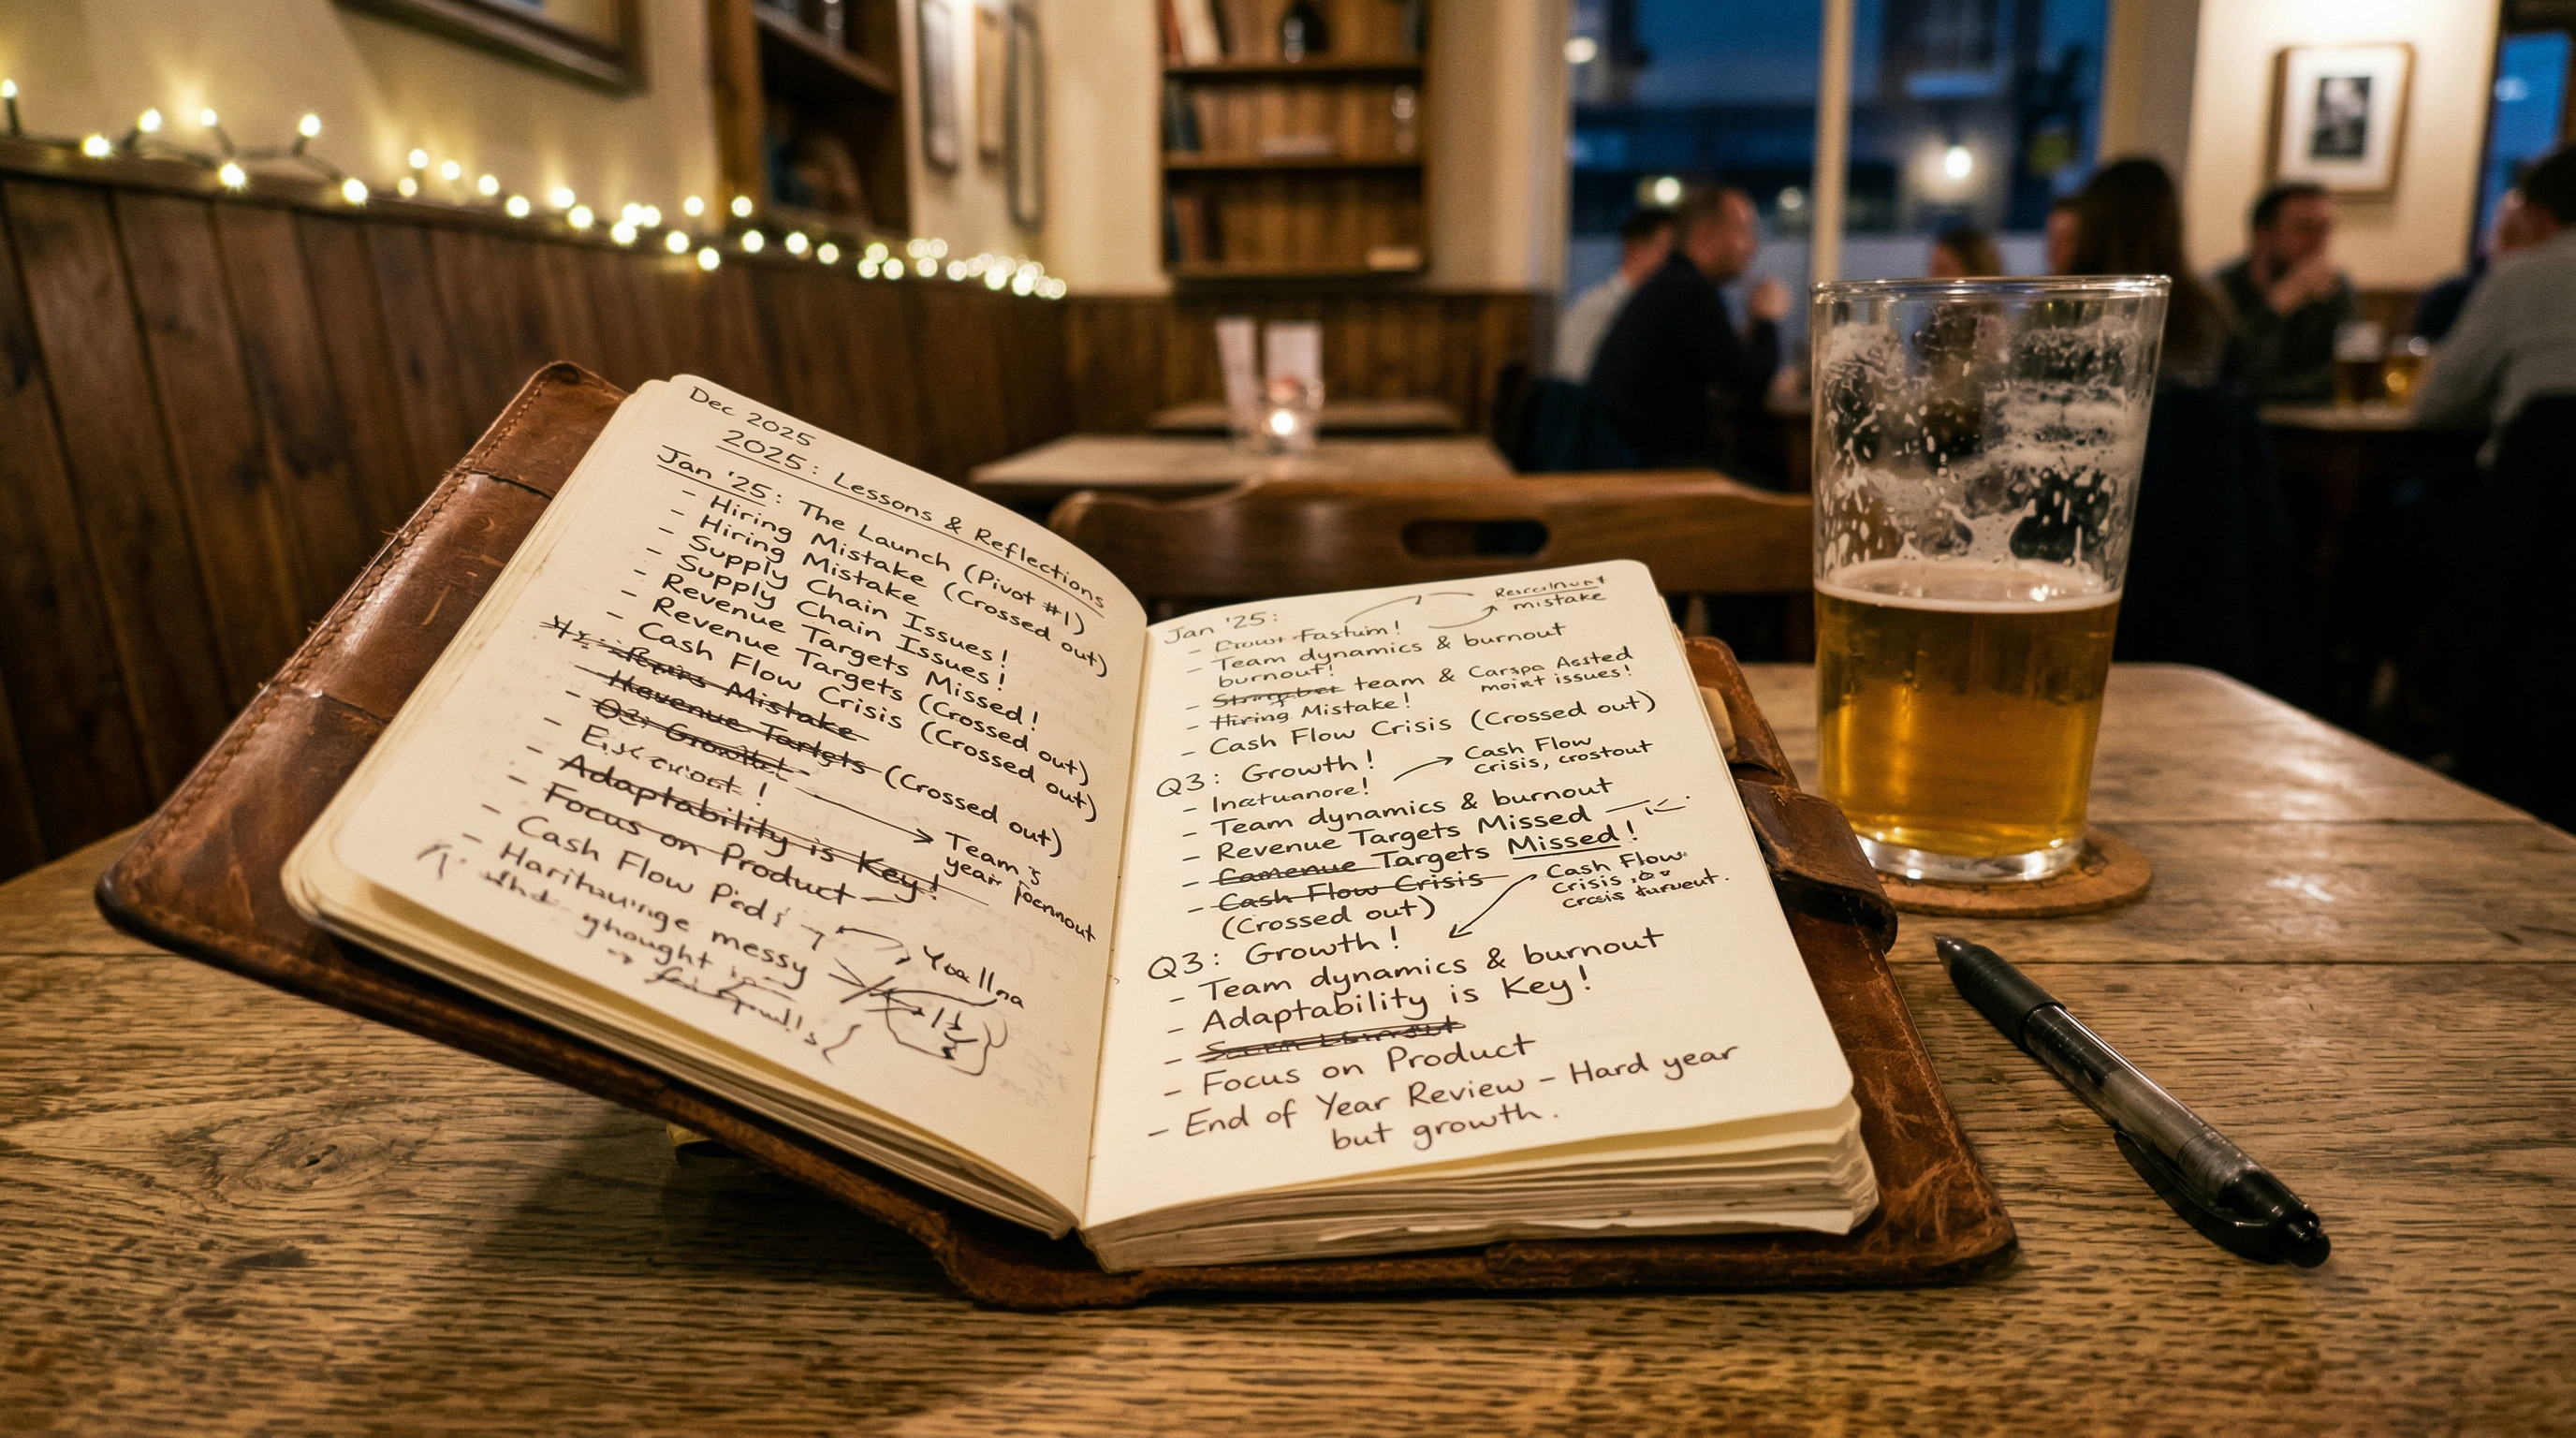 Dec 2025
2025: Lessons & Reflections
Jan '25: The Launch (Pivot #1)
- Hiring Mistake (Crossed out)
- Hiring Mistake
- Supply Chain Issues!
- Supply Chain Issues!
- Revenue Targets Missed!
- Revenue Targets (Crossed out)
- Cash Flow Crisis (Crossed out)
Mistake
- Revenue Targets (Crossed out)
- Q3: Growth
- Adaptability is Key!
- Focus on Product
- Cash Flow
- messy
Team's
year
Jan '25:
mistake
- Team dynamics & burnout
burnout!
- team &
issues!
- Hiring Mistake!
- Cash Flow Crisis (Crossed out)
Q3: Growth!
Cash Flow
crisis,
- Team dynamics & burnout
- Revenue Targets Missed
- Targets Missed!
- Cash Flow Crisis
(Crossed out)
Cash Flow
Crisis
Q3: Growth!
- Team dynamics & burnout
- Adaptability is Key!
- Focus on Product
- End of Year Review - Hard year
but growth.